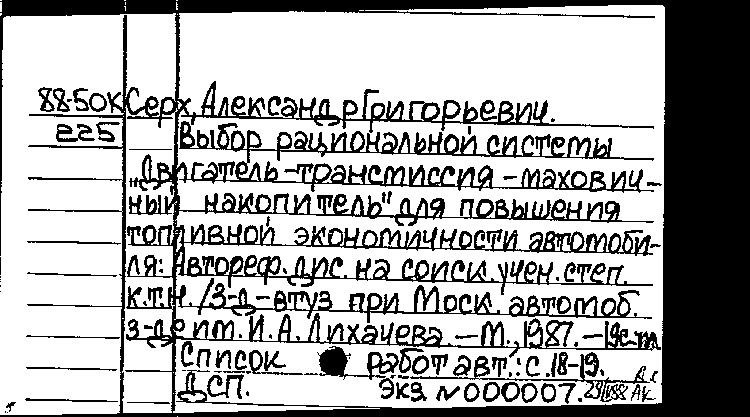 88-50К Серх, Александр Григорьевич.
225 Выбор рациональной системы
„Двигатель-трансмиссия-махович-
ный накопитель" для повышения
топливной экономичности автомоби-
ля: Автореф. дис. на соиск. учен. степ.
к.т.н. /З-д-втуз при Моск. автомоб.
з-де им. И.А. Лихачева. -М., 1987. -19с.
Список работ авт.: с. 18-19.
ДСП. Экз N 000007.